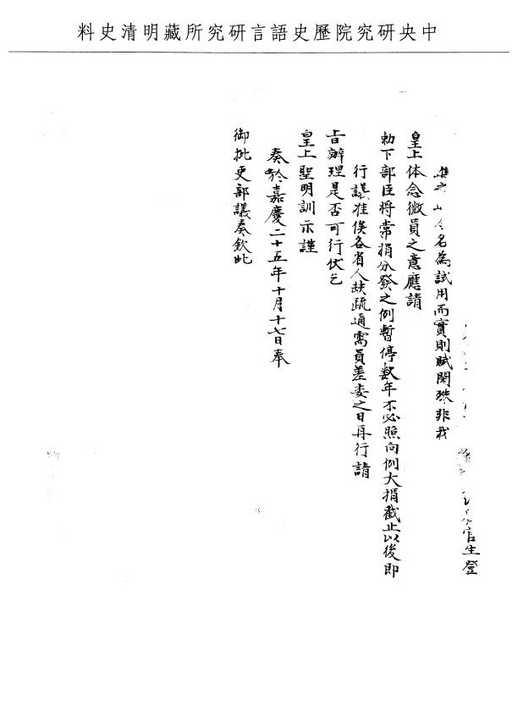 中央研究院歷史語言研究所藏明清史料
官生登
名為試用而實則賦閒殊非我
皇上体念微員之意應請
勅下部臣將常捐分發之例暫停數年不必照向例大捐截止以後即
行議准俟各省人缺疏通需員差委之日再行請
旨辦理是否可行伏乞
皇上聖明訓示謹
奏於嘉慶二十五年十月十七日奉
御批吏部議奏欽此